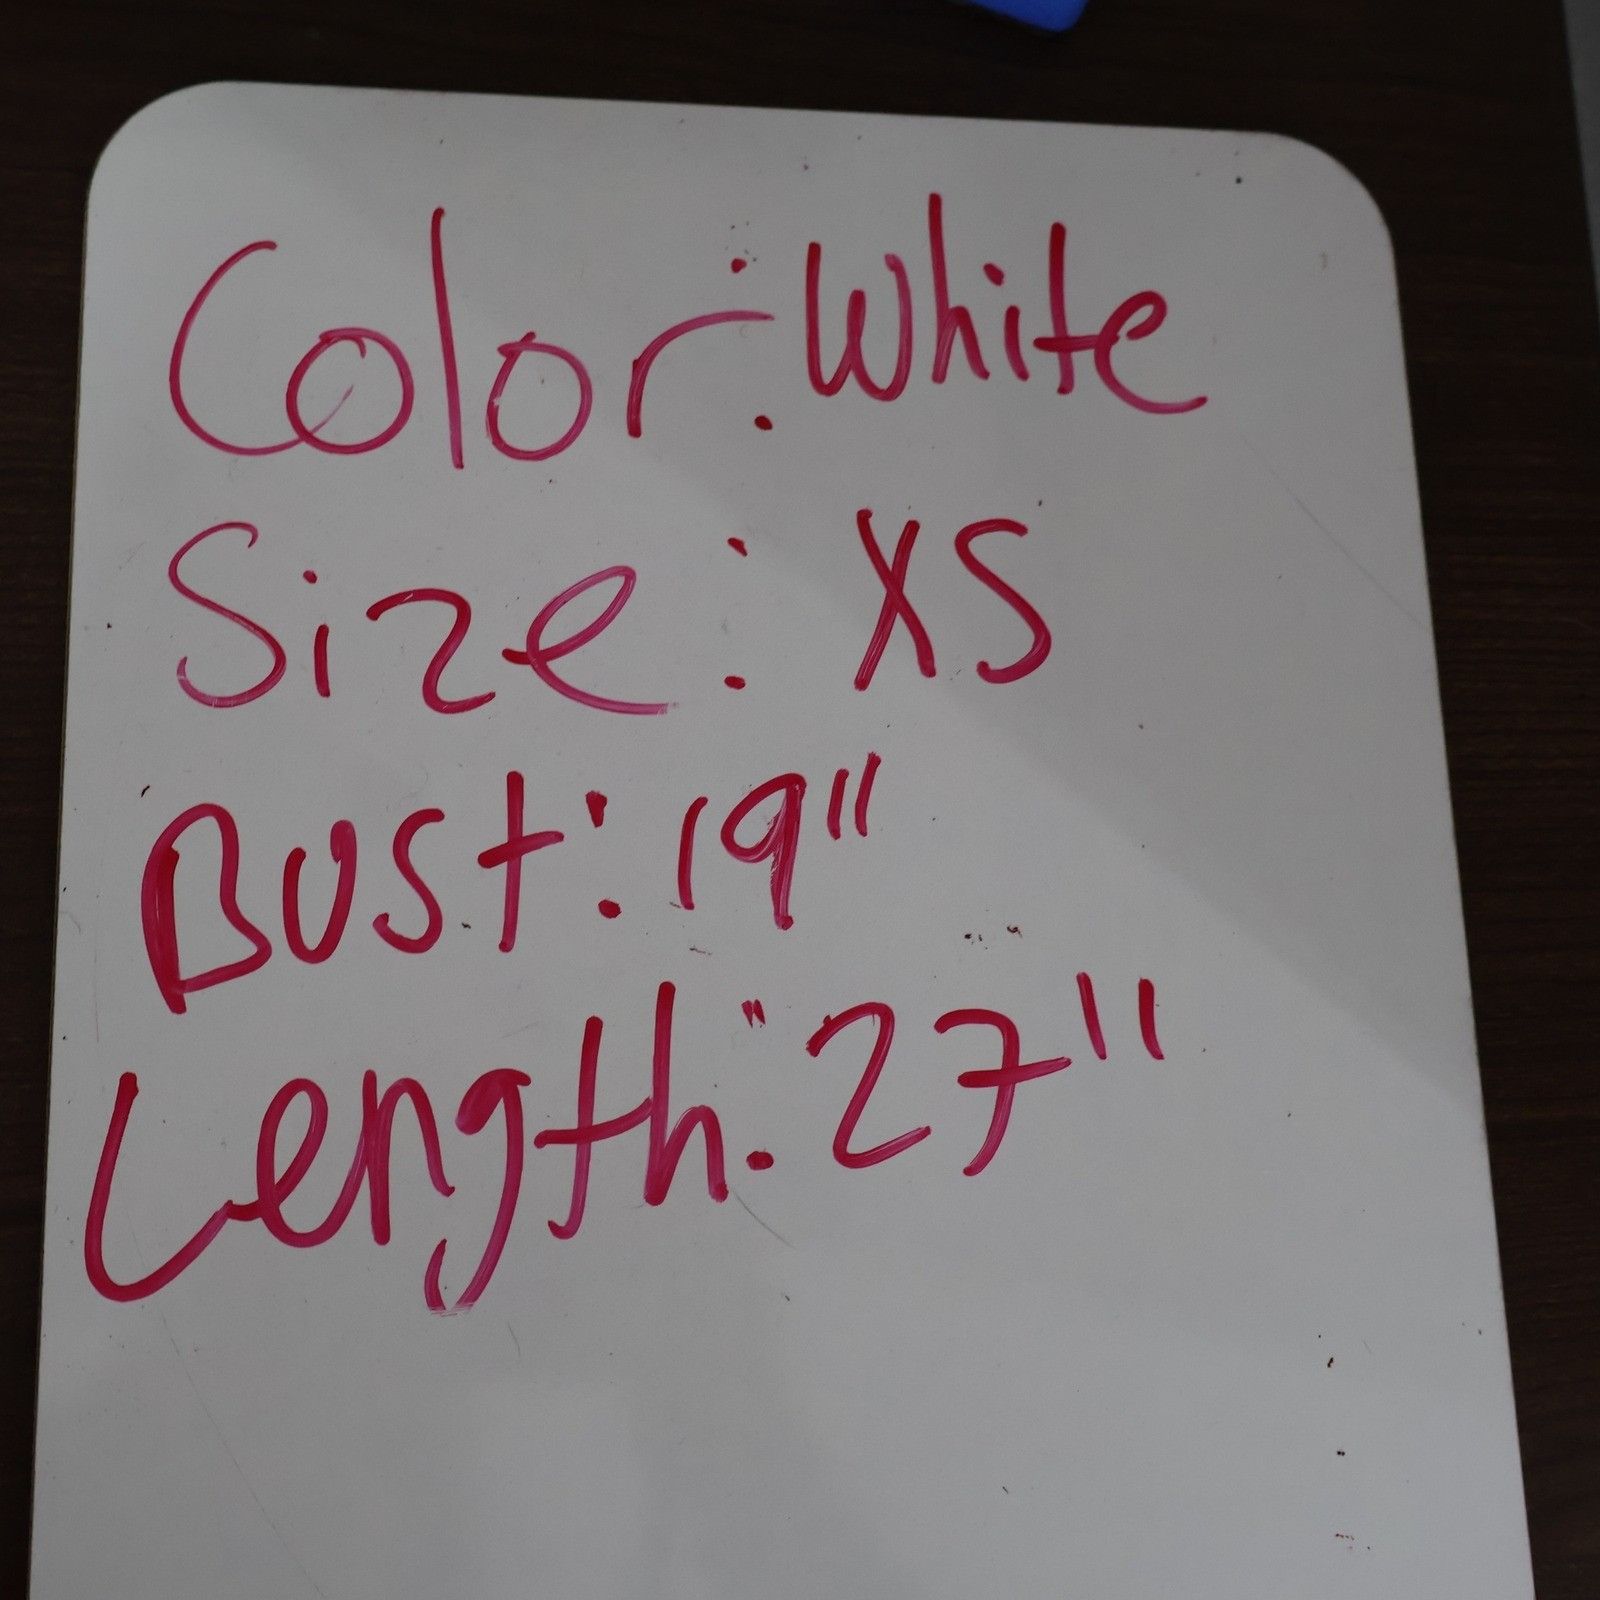 Color: White
Size: XS
Bust: 19"
Length: 27"